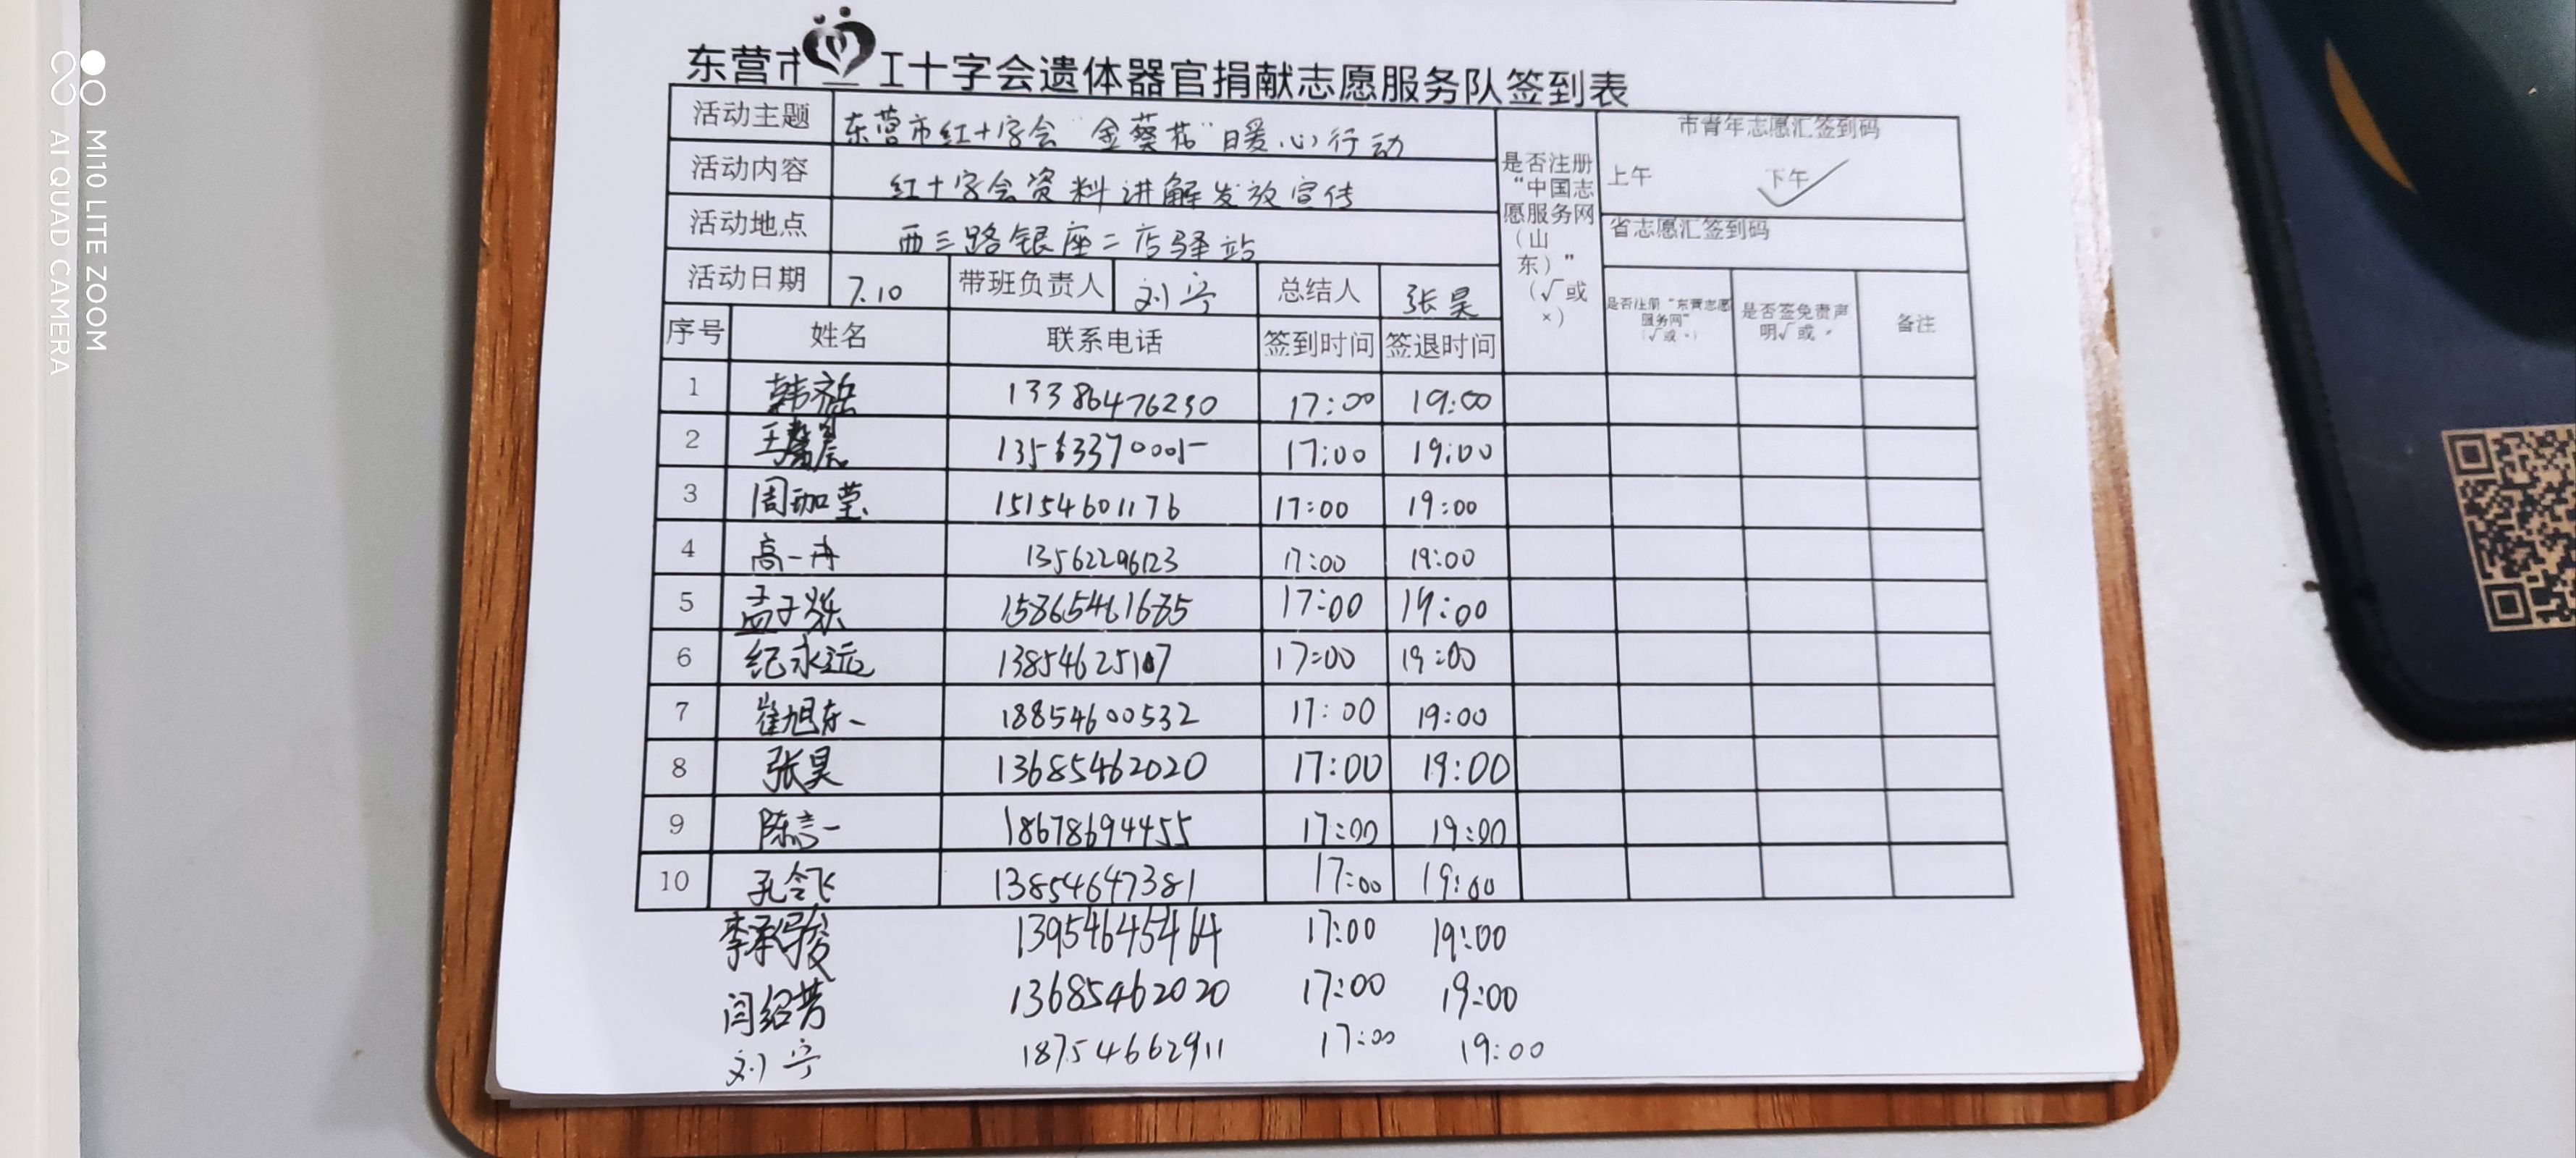 东营市红十字会遗体器官捐献志愿服务队签到表
活动主题 东营市红十字会“金葵花”暖心行动
活动内容 红十字会资料讲解发放宣传
活动地点 西三路银座二店驿站
活动日期 7.10 带班负责人 刘宁 总结人 张昊
是否注册“中国志愿服务网（山东）”（√或×）
市青年志愿汇签到码
上午 下午 ✓
省志愿汇签到码
是否注册“东营志愿服务网”（√或×）
是否签免责声明√或×
备注
序号 姓名 联系电话 签到时间 签退时间
1 韩 13386476230 17:00 19:00
2 王馨晨 13563370005 17:00 19:00
3 周珈莹 15154601176 17:00 19:00
4 高一丹 13562296123 17:00 19:00
5 孟子烁 15865461685 17:00 19:00
6 纪永远 13854625107 17:00 19:00
7 崔旭东 18854600532 17:00 19:00
8 张昊 13685462020 17:00 19:00
9 陈言一 18678694455 17:00 19:00
10 孔令飞 13854647381 17:00 19:00
李承骏 13954645464 17:00 19:00
闫绍芳 13685462020 17:00 19:00
刘宁 18754662911 17:00 19:00
MI10 LITE ZOOM
AI QUAD CAMERA